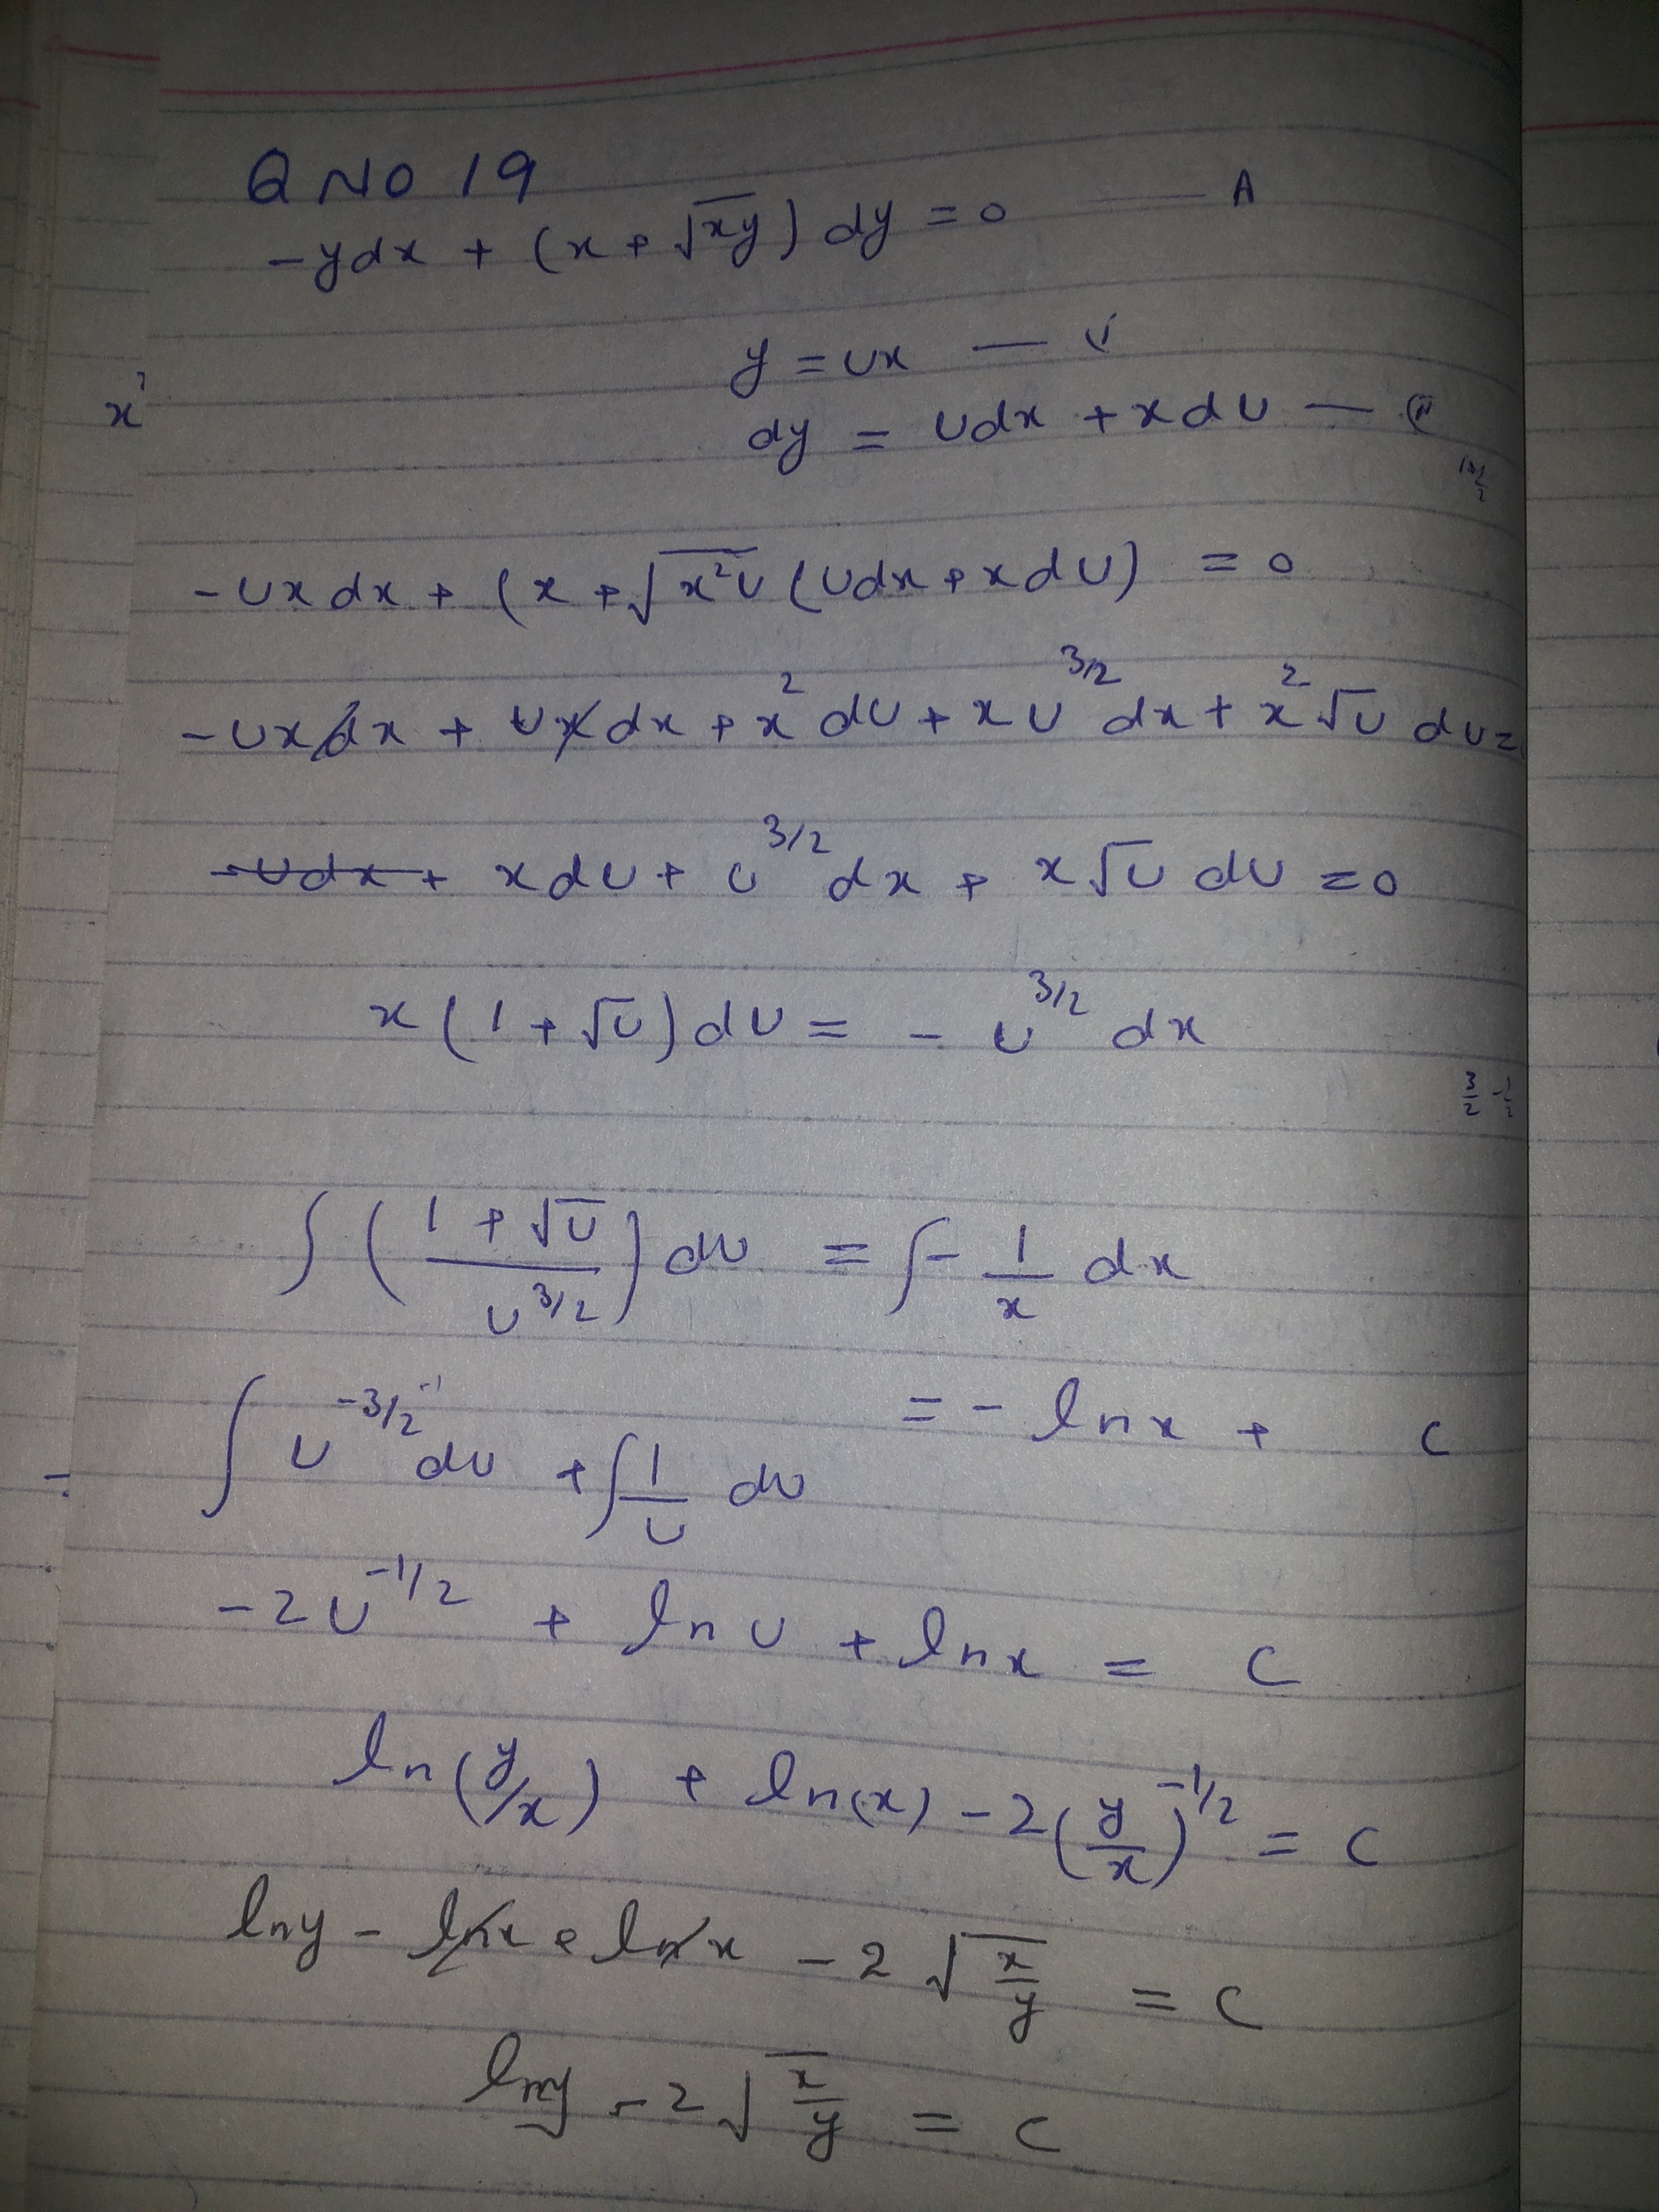 Q NO 19
-ydx + (x + √xy) dy = 0 — A
y = ux — i
x
dy = udx + xdu — ii
-uxdx + (x + √x²u (udx + xdu) = 0
-uxdx + uxdx + x²du + xu^3/2 dx + x²√u du =
-udx + xdu + u^3/2 dx + x√u du = 0
x(1 + √u)du = - u^3/2 dx
3/2 - 1/2
∫ (1 + √u / u^3/2) du = ∫ - 1/x dx
∫ u^-3/2 du + ∫ 1/u du = - ln x + c
-2u^-1/2 + ln u + ln x = c
ln(y/x) + ln(x) - 2(y/x)^-1/2 = c
lny - lnx + lnx - 2√x/y = c
lny - 2√x/y = c